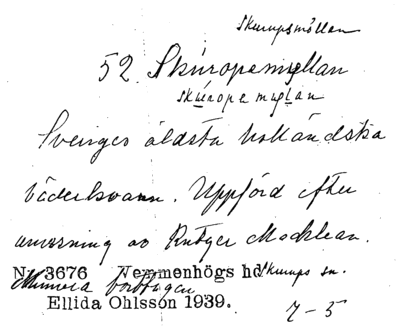 Skurupsmöllan
52. Skúropemyllan
skúrope myllan
Sveriges äldsta holländska
väderkvarn. Uppförd efter
anvisning av Rutger Macklean.
Nr 3676 Vemmenhögs hd Skurups sn.
borttagen
Ellida Ohlsson 1939.
7-5